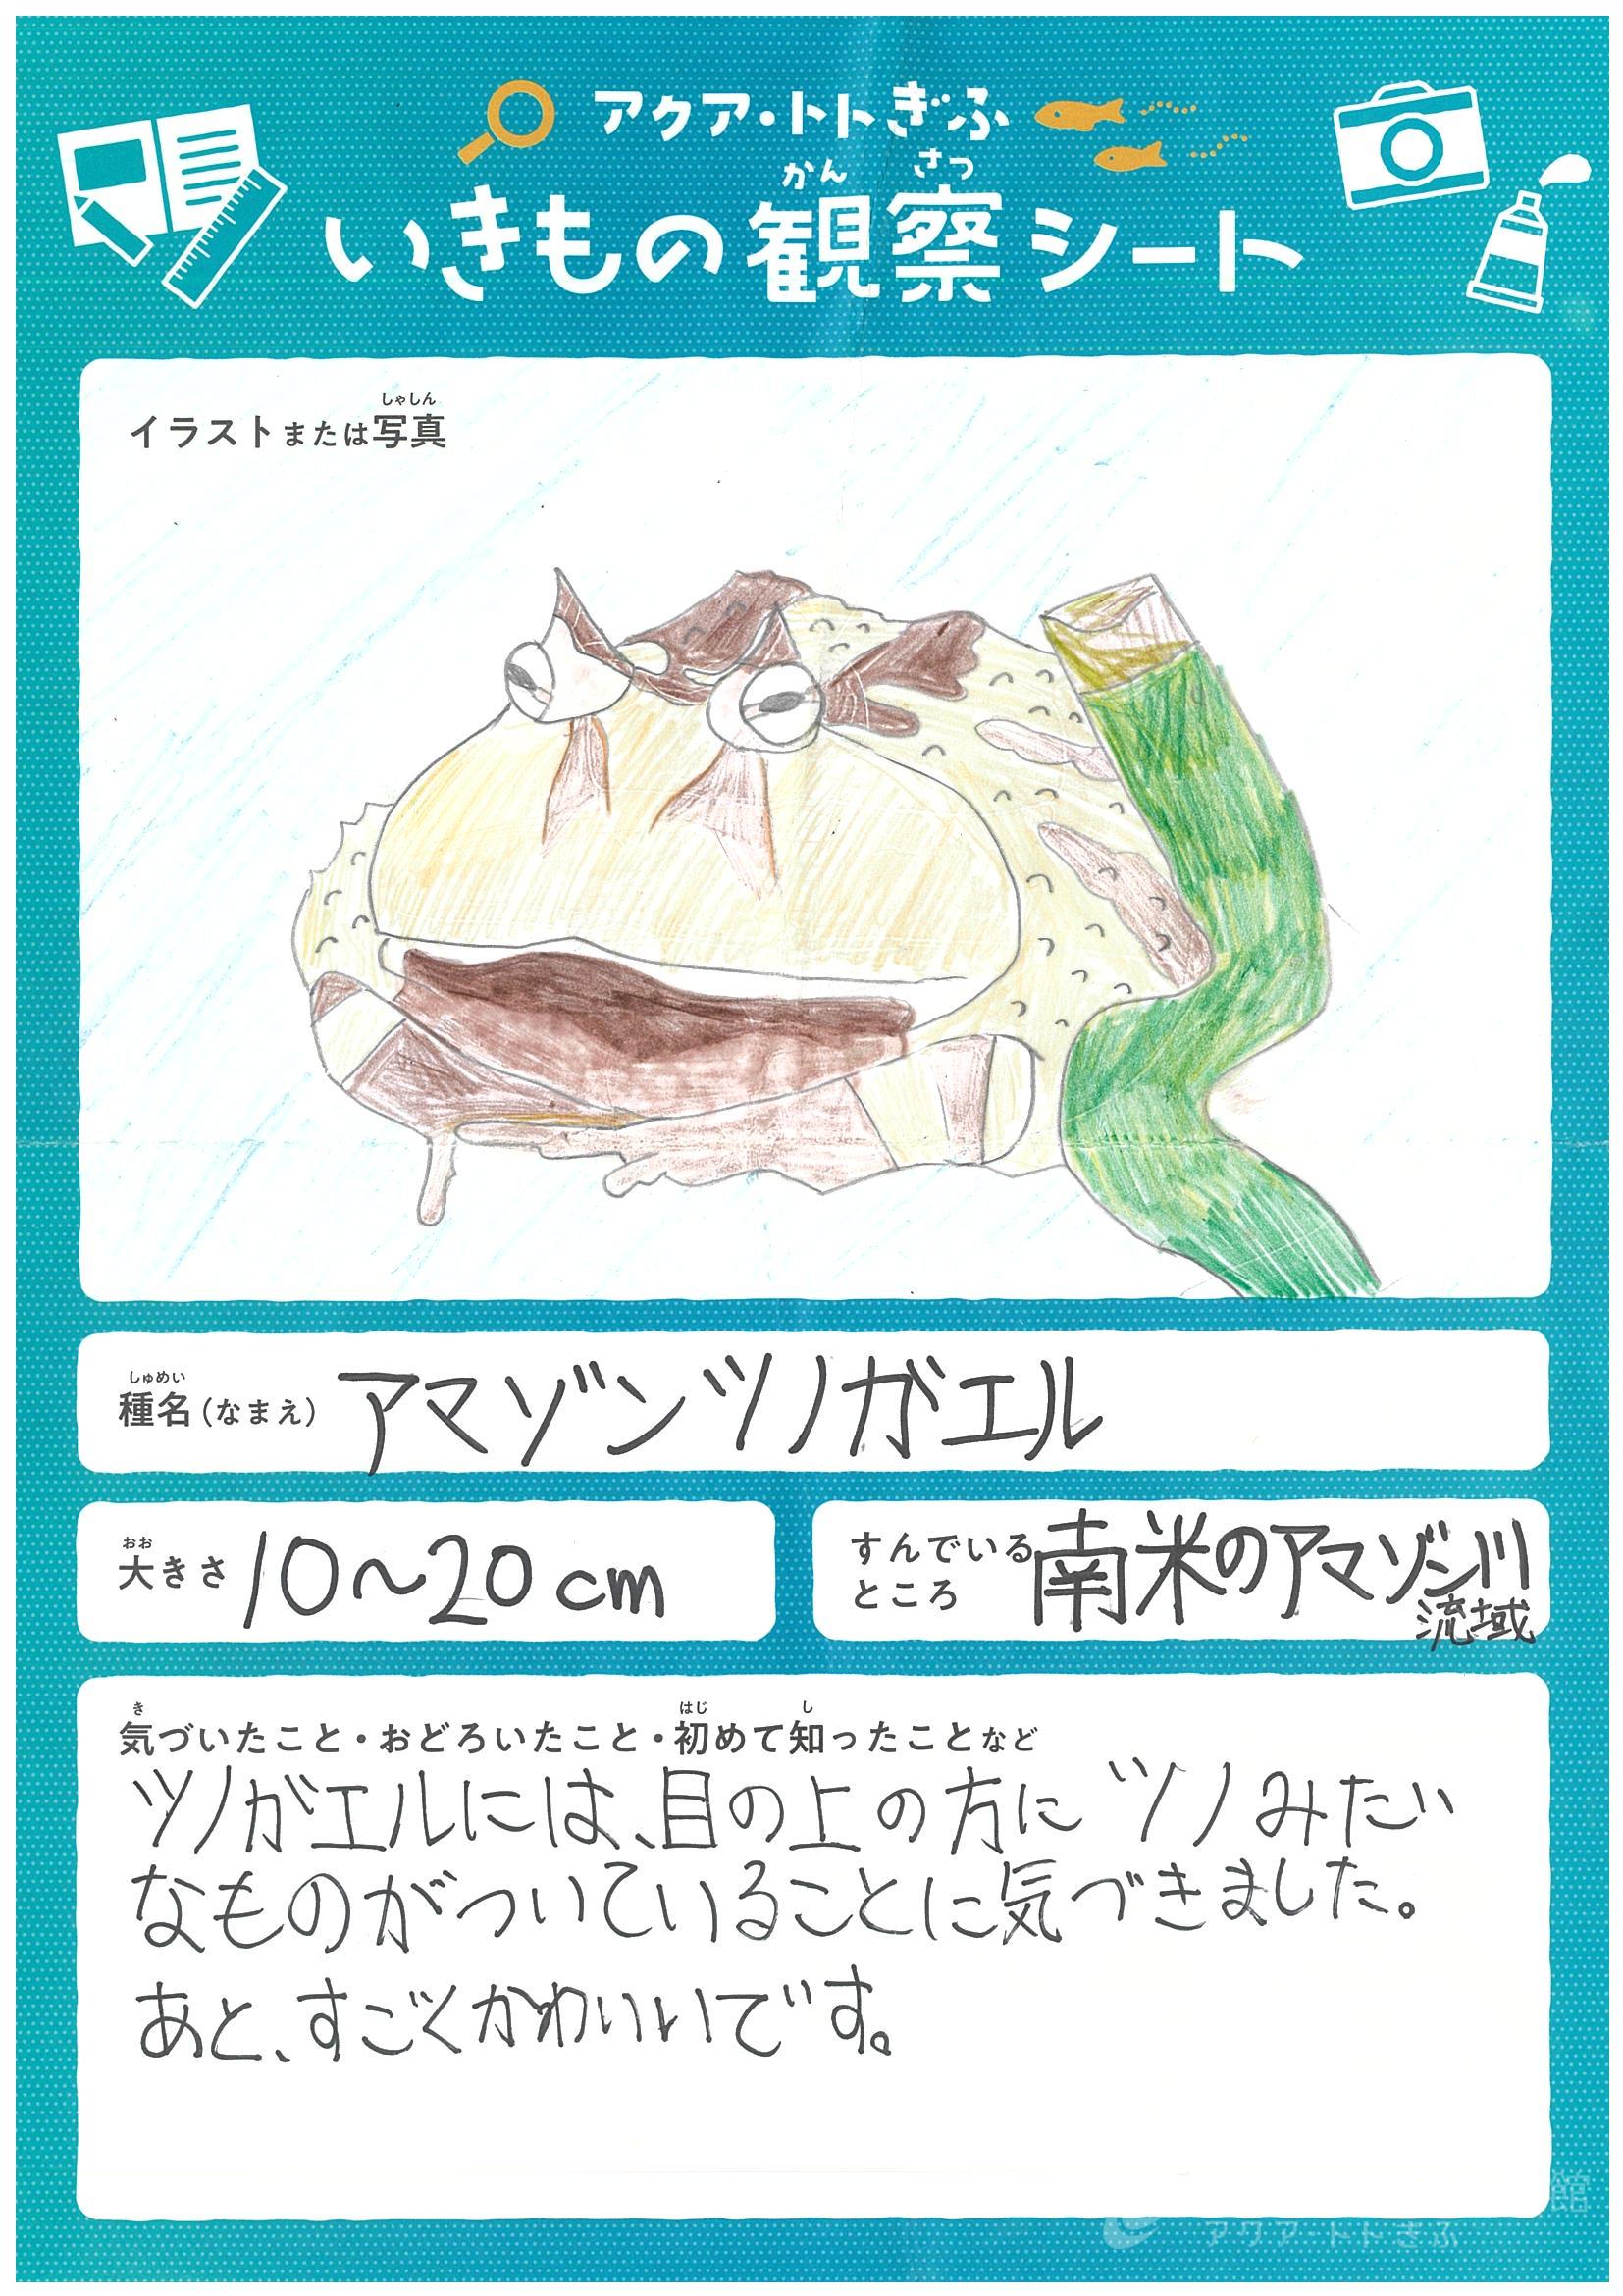 アクア・トトぎふ
かん さつ
いきもの観察シート
しゃしん
イラストまたは写真
しゅめい
種名(なまえ) アマゾンツノガエル
おお
大きさ 10~20cm
すんでいる
ところ
南米のアマゾン川
流域
き はじ し
気づいたこと・おどろいたこと・初めて知ったことなど
ツノガエルには、目の上の方にツノみたい
なものがついていることに気づきました。
あと、すごくかわいいです。
館
アクア・トトぎふ